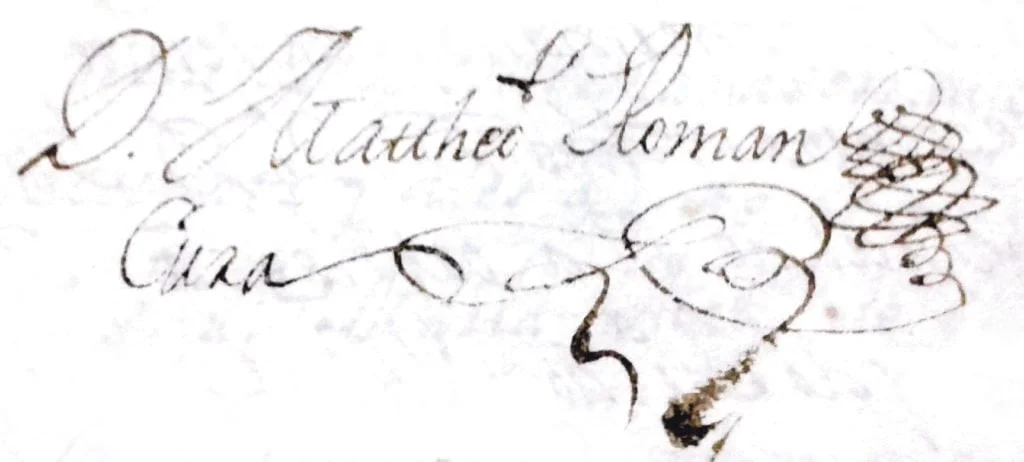 D. Mattheo Roman
Cura